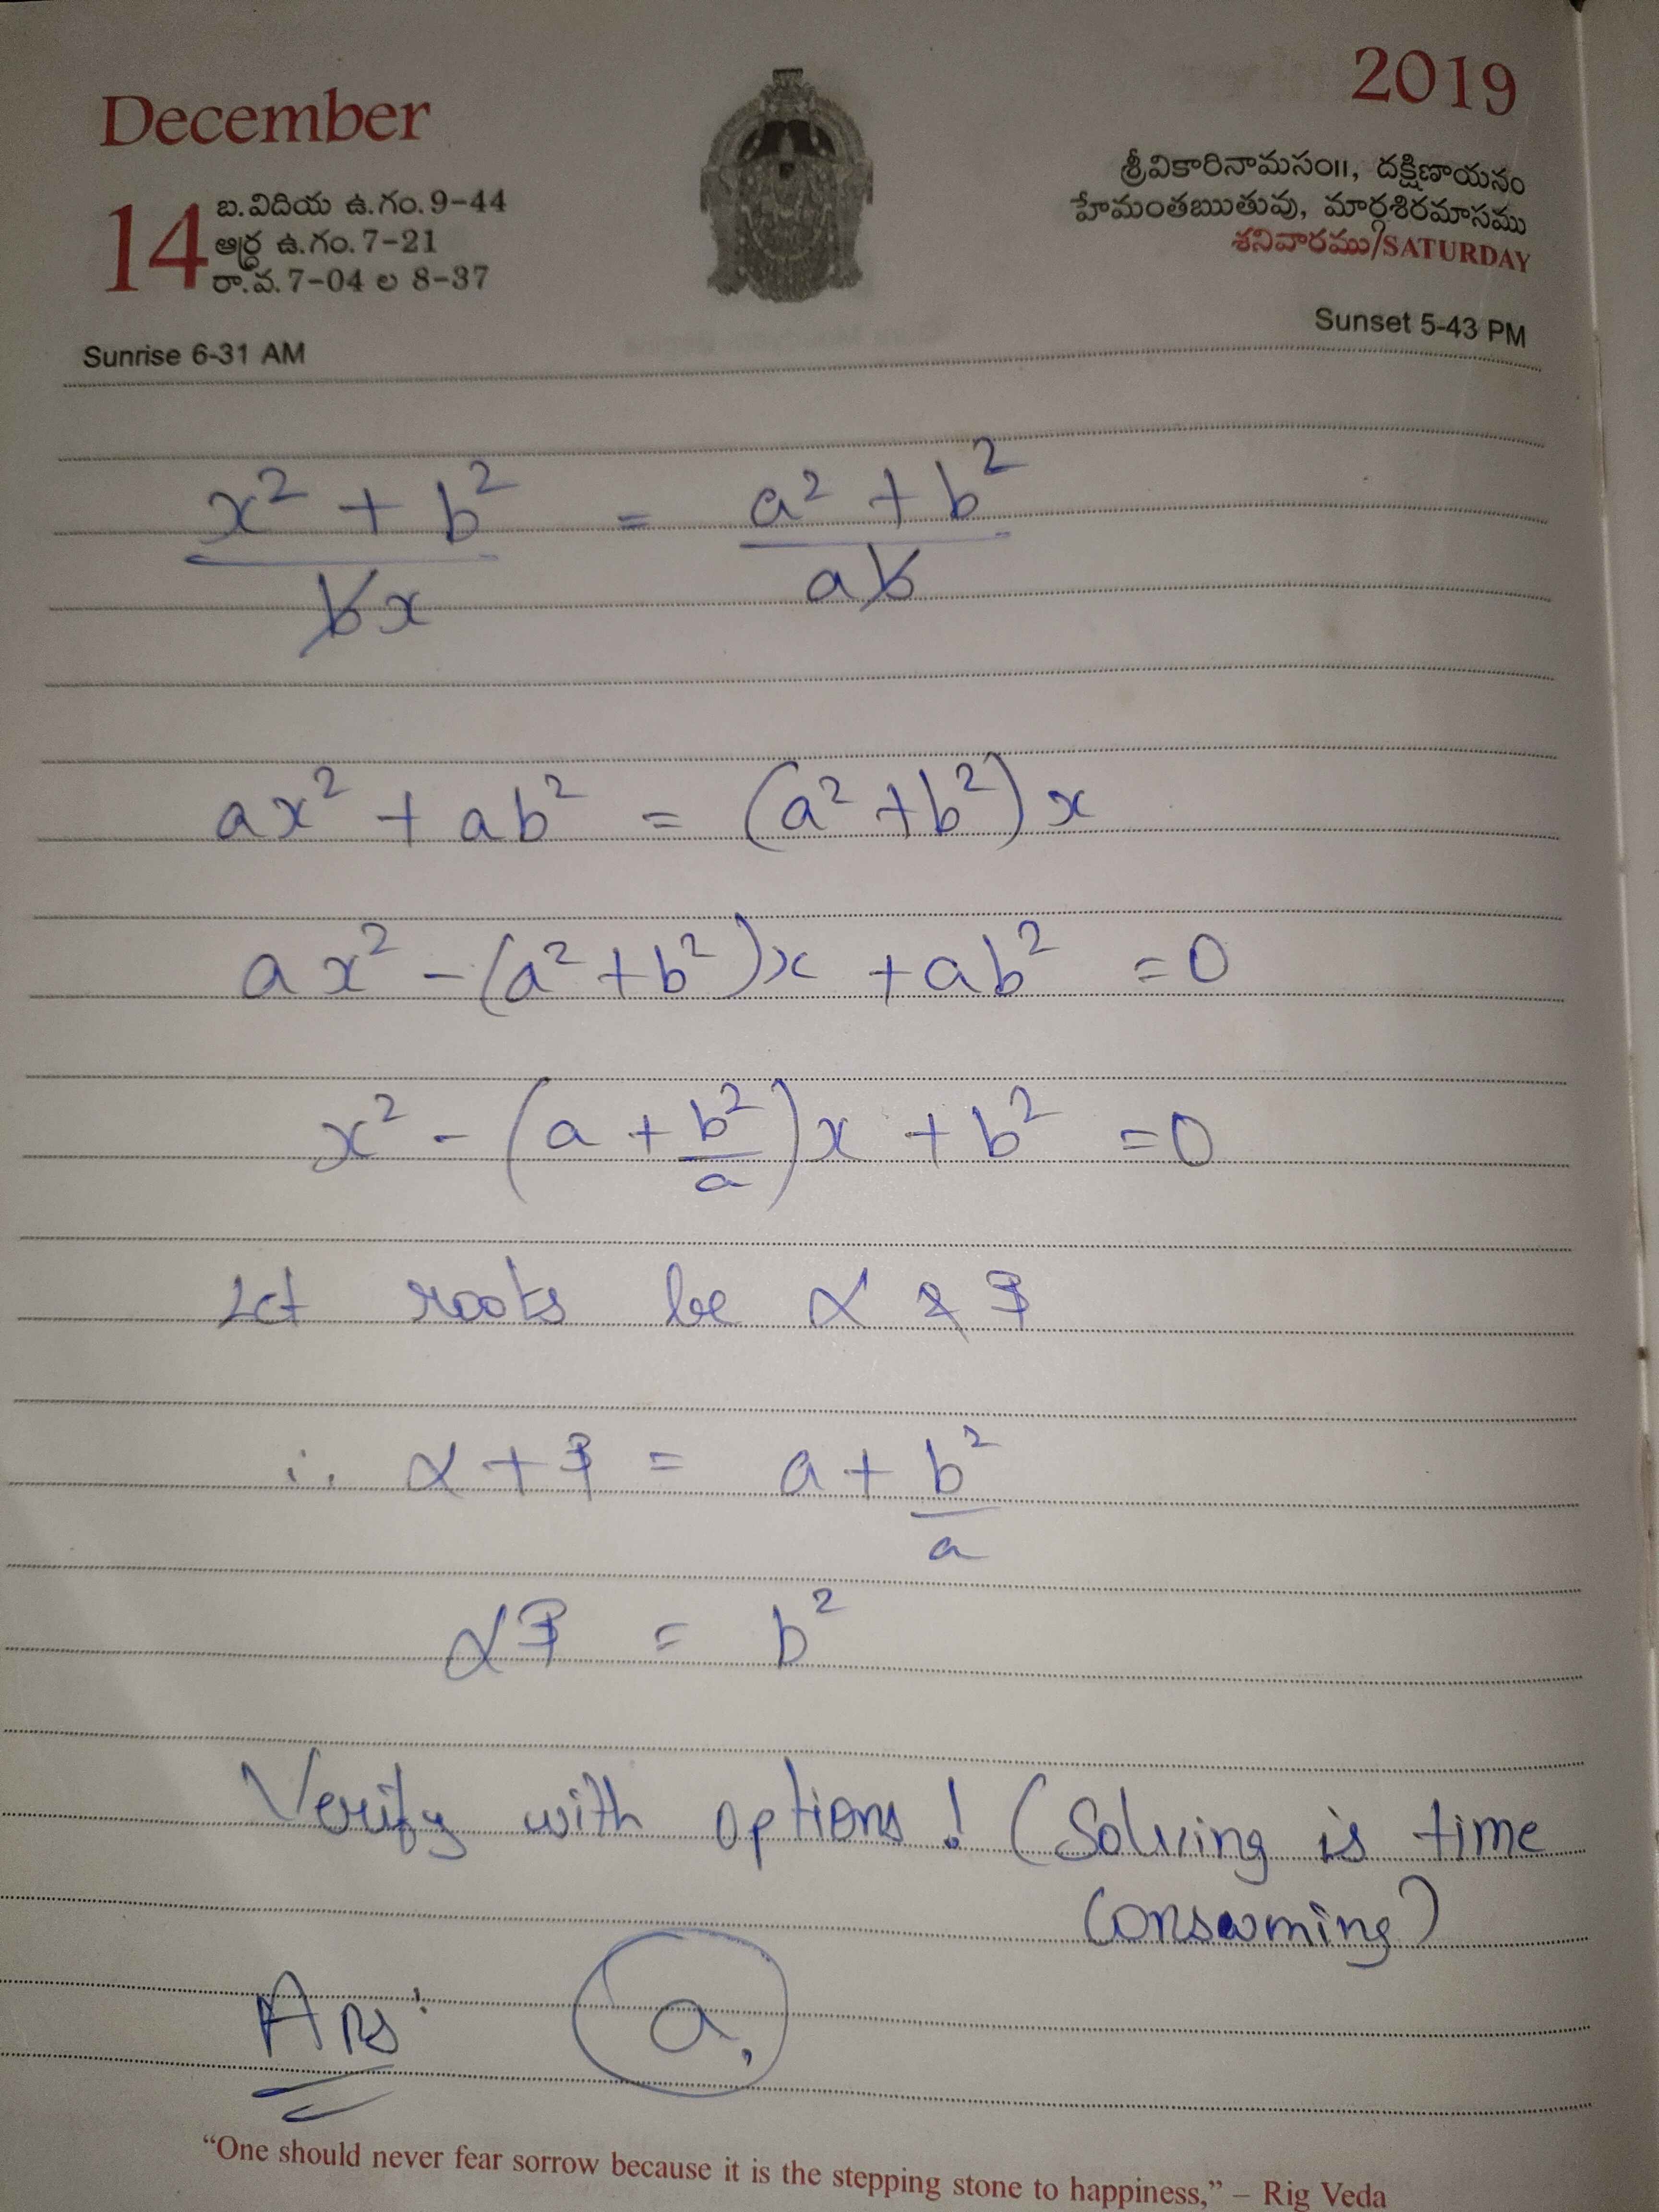 December
2019
14
బ.విదియ ఉ.గం.9-44
ఆర్ద్ర ఉ.గం.7-21
రా.వ.7-04 ల 8-37
శ్రీవికారినామసం॥, దక్షిణాయనం
హేమంతఋతువు, మార్గశిరమాసము
శనివారము/SATURDAY
Sunrise 6-31 AM
Sunset 5-43 PM
x² + b² / bx = a² + b² / ab
ax² + ab² = (a² + b²) x
ax² - (a² + b²)x + ab² = 0
x² - (a + b²/a)x + b² = 0
Let roots be α & β
∴ α + β = a + b²/a
αβ = b²
Verify with options! (Solving is time
consuming)
Ans: a,
“One should never fear sorrow because it is the stepping stone to happiness,” – Rig Veda